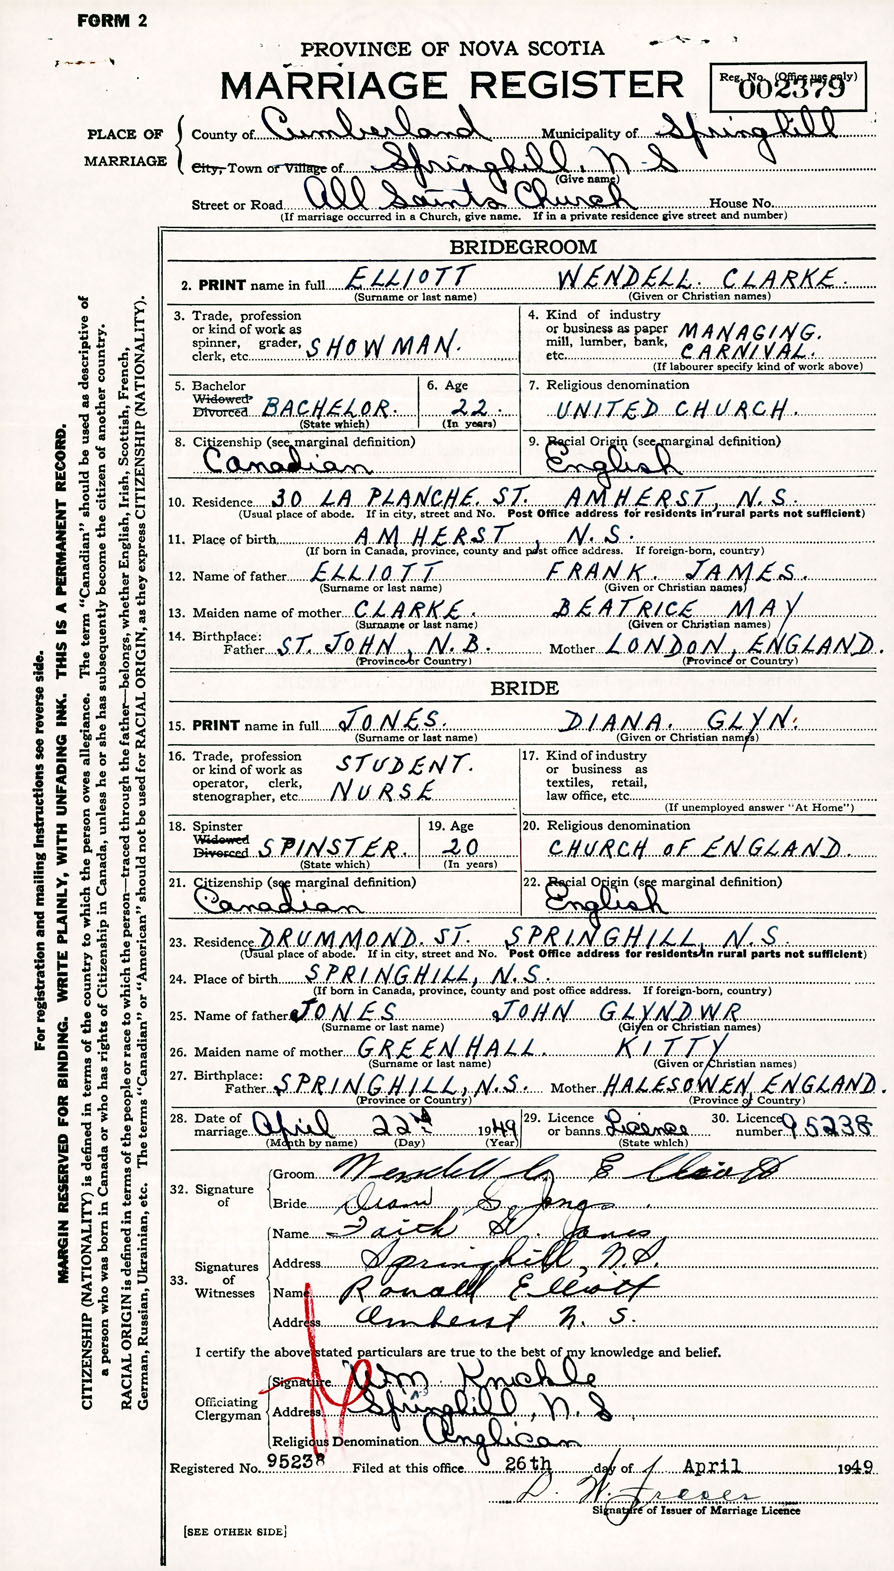 FORM 2
PROVINCE OF NOVA SCOTIA
MARRIAGE REGISTER
Reg. No. (Office use only)
002379
PLACE OF MARRIAGE
County of Cumberland Municipality of Springhill
City, Town or Village of Springhill, N-S
(Give name)
Street or Road All Saints Church House No.
(If marriage occurred in a Church, give name. If in a private residence give street and number)
BRIDEGROOM
2. PRINT name in full ELLIOTT WENDELL CLARKE.
(Surname or last name) (Given or Christian names)
3. Trade, profession
or kind of work as
spinner, grader,
clerk, etc. SHOWMAN.
4. Kind of industry
or business as paper
mill, lumber, bank,
etc. MANAGING.
CARNIVAL.
(If labourer specify kind of work above)
5. Bachelor
Widowed
Divorced BACHELOR.
(State which)
6. Age
22.
(In years)
7. Religious denomination
UNITED CHURCH.
8. Citizenship (see marginal definition)
Canadian
9. Racial Origin (see marginal definition)
English
10. Residence 30 LA PLANCHE. ST. AMHERST, N.S.
(Usual place of abode. If in city, street and No. Post Office address for residents in rural parts not sufficient)
11. Place of birth AMHERST, N.S.
(If born in Canada, province, county and post office address. If foreign-born, country)
12. Name of father ELLIOTT FRANK. JAMES.
(Surname or last name) (Given or Christian names)
13. Maiden name of mother CLARKE. BEATRICE MAY
(Surname or last name) (Given or Christian names)
14. Birthplace:
Father ST. JOHN, N.B. Mother LONDON, ENGLAND.
(Province or Country) (Province or Country)
BRIDE
15. PRINT name in full JONES. DIANA. GLYN.
(Surname or last name) (Given or Christian names)
16. Trade, profession
or kind of work as
operator, clerk,
stenographer, etc. STUDENT.
NURSE
17. Kind of industry
or business as
textiles, retail,
law office, etc.
(If unemployed answer "At Home")
18. Spinster
Widowed
Divorced SPINSTER.
(State which)
19. Age
20
(In years)
20. Religious denomination
CHURCH OF ENGLAND.
21. Citizenship (see marginal definition)
Canadian
22. Racial Origin (see marginal definition)
English
23. Residence DRUMMOND. ST. SPRINGHILL, N.S.
(Usual place of abode. If in city, street and No. Post Office address for residents in rural parts not sufficient)
24. Place of birth SPRINGHILL, N.S.
(If born in Canada, province, county and post office address. If foreign-born, country)
25. Name of father JONES JOHN GLYNDWR
(Surname or last name) (Given or Christian names)
26. Maiden name of mother GREENHALL. KITTY
(Surname or last name) (Given or Christian names)
27. Birthplace:
Father SPRINGHILL, N.S. Mother HALESOWEN, ENGLAND.
(Province or Country) (Province or Country)
28. Date of
marriage April 22nd 1949
(Month by name) (Day) (Year)
29. Licence
or banns Licence
(State which)
30. Licence
number 95238
32. Signature of
Groom Wendell C Elliott
Bride Diana G. Jones
33. Signatures of Witnesses
Name Faith Jones
Address Springhill, N.S.
Name Ronald Elliott
Address Amherst N. S.
I certify the above stated particulars are true to the best of my knowledge and belief.
Officiating Clergyman
Signature Wm. Knickle
Address Springhill, N.S
Religious Denomination Anglican
Registered No. 95238 Filed at this office 26th day of April 1949
D. W. Fraser
Signature of Issuer of Marriage Licence
[SEE OTHER SIDE]
For registration and mailing Instructions see reverse side.
MARGIN RESERVED FOR BINDING. WRITE PLAINLY, WITH UNFADING INK. THIS IS A PERMANENT RECORD.
CITIZENSHIP (NATIONALITY) is defined in terms of the country to which the person owes allegiance. The term "Canadian" should be used as descriptive of
a person who was born in Canada or who has rights of Citizenship in Canada, unless he or she has subsequently become the citizen of another country.
RACIAL ORIGIN is defined in terms of the people or race to which the person—traced through the father—belongs, whether English, Irish, Scottish, French,
German, Russian, Ukrainian, etc. The terms "Canadian" or "American" should not be used for RACIAL ORIGIN, as they express CITIZENSHIP (NATIONALITY).